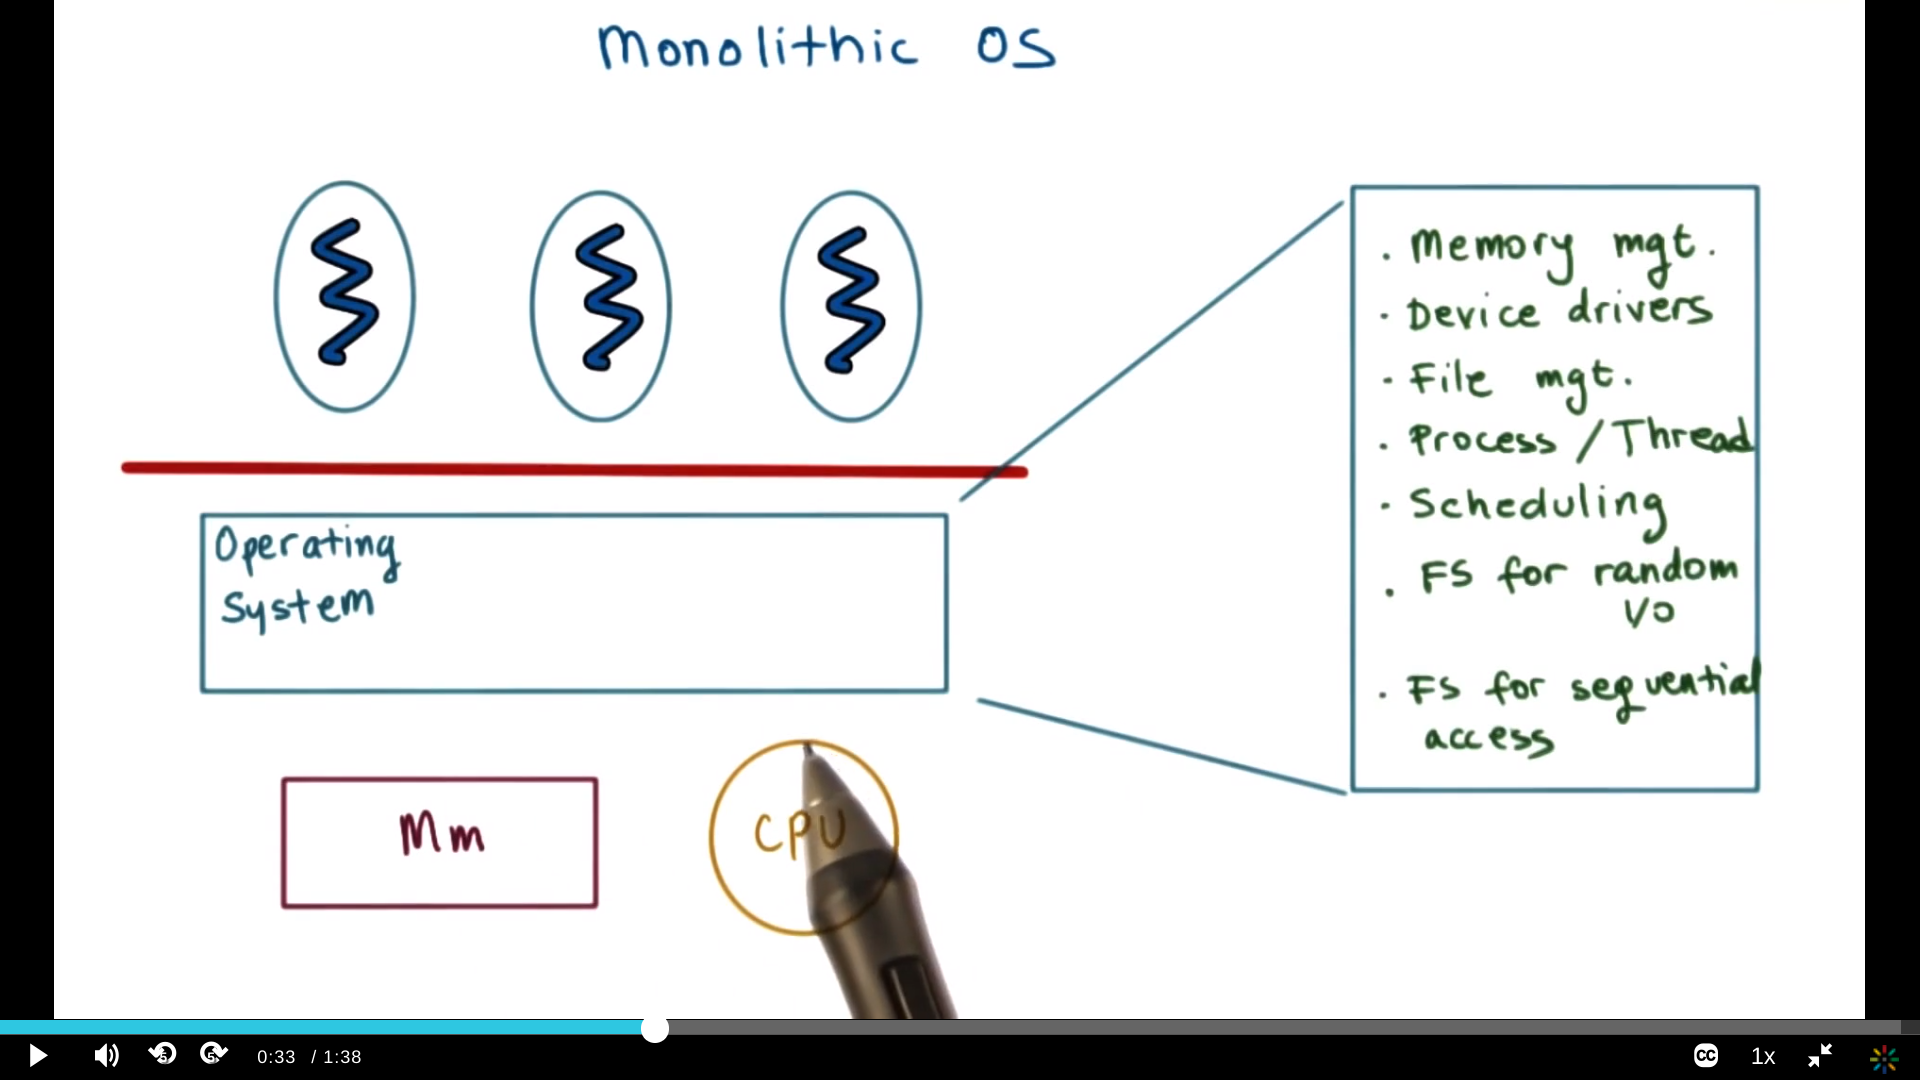 Monolithic OS
Operating
System
Mm
CPU
. Memory mgt.
. Device drivers
. File mgt.
. Process / Thread
. Scheduling
. FS for random
I/O
. FS for sequential
access
5
5
0:33 / 1:38
CC
1x